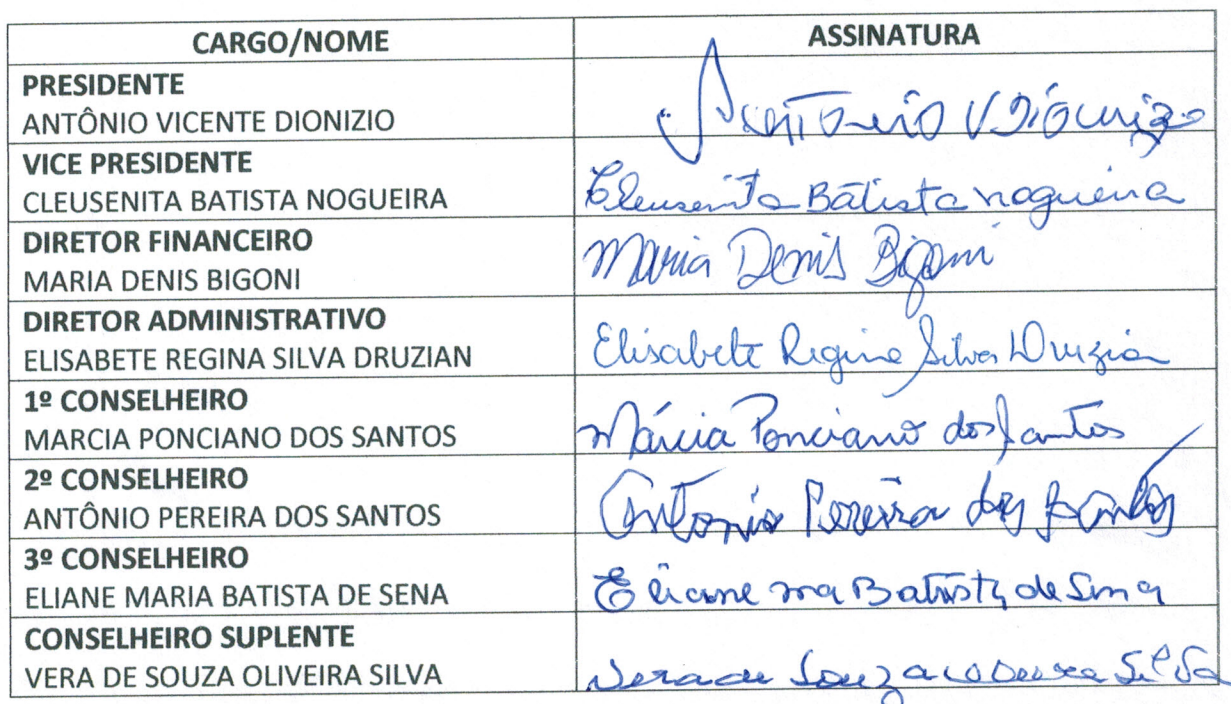 CARGO/NOME ASSINATURA
PRESIDENTE
ANTÔNIO VICENTE DIONIZIO Antonio V Dionizio
VICE PRESIDENTE
CLEUSENITA BATISTA NOGUEIRA Cleusenita Batista nogueira
DIRETOR FINANCEIRO
MARIA DENIS BIGONI Maria Denis Bigoni
DIRETOR ADMINISTRATIVO
ELISABETE REGINA SILVA DRUZIAN Elisabete Regina Silva Druzian
1º CONSELHEIRO
MARCIA PONCIANO DOS SANTOS Márcia Ponciano dos Santos
2º CONSELHEIRO
ANTÔNIO PEREIRA DOS SANTOS Antonio Pereira dos Santos
3º CONSELHEIRO
ELIANE MARIA BATISTA DE SENA Eliane ma Batista de Sena
CONSELHEIRO SUPLENTE
VERA DE SOUZA OLIVEIRA SILVA Vera de Souza Silva